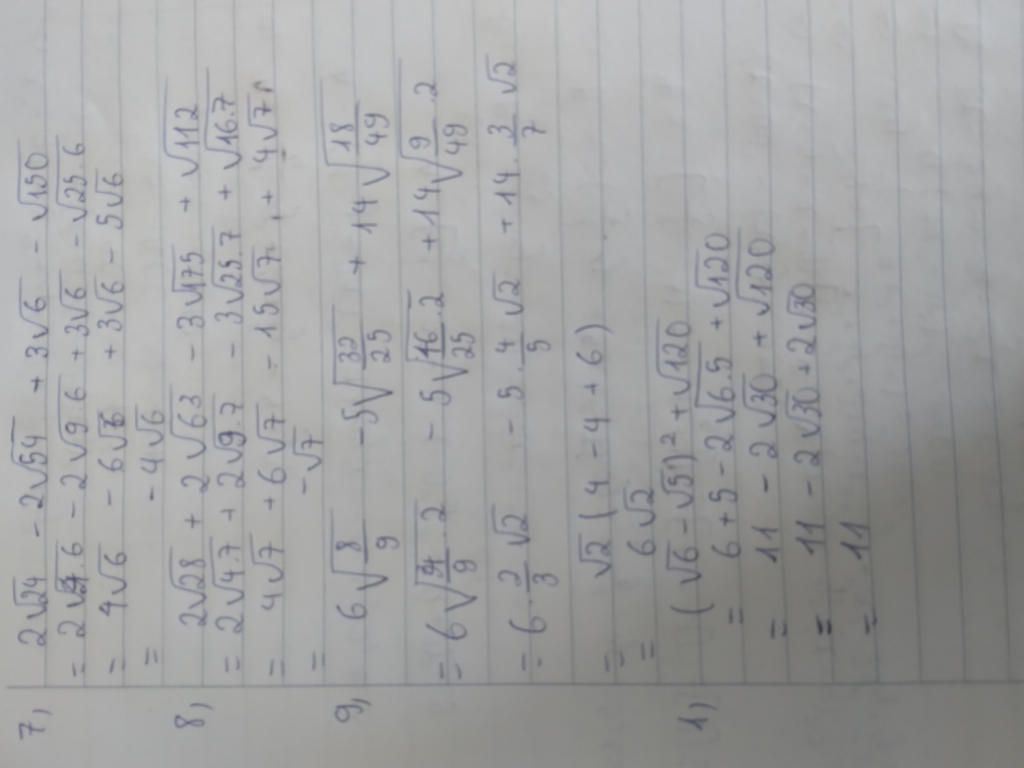 7) 2√24 - 2√54 + 3√6 - √150
= 2√4.6 - 2√9.6 + 3√6 - √25.6
= 4√6 - 6√6 + 3√6 - 5√6
= -4√6
8) 2√28 + 2√63 - 3√175 + √112
= 2√4.7 + 2√9.7 - 3√25.7 + √16.7
= 4√7 + 6√7 - 15√7 + 4√7
= -√7
9) 6√8/9 - 5√32/25 + 14√18/49
= 6√4/9.2 - 5√16/25.2 + 14√9/49.2
= 6.2/3√2 - 5.4/5√2 + 14.3/7√2
= √2(4 - 4 + 6)
= 6√2
1) (√6 - √5)² + √120
= 6 + 5 - 2√6.5 + √120
= 11 - 2√30 + √120
= 11 - 2√30 + 2√30
= 11